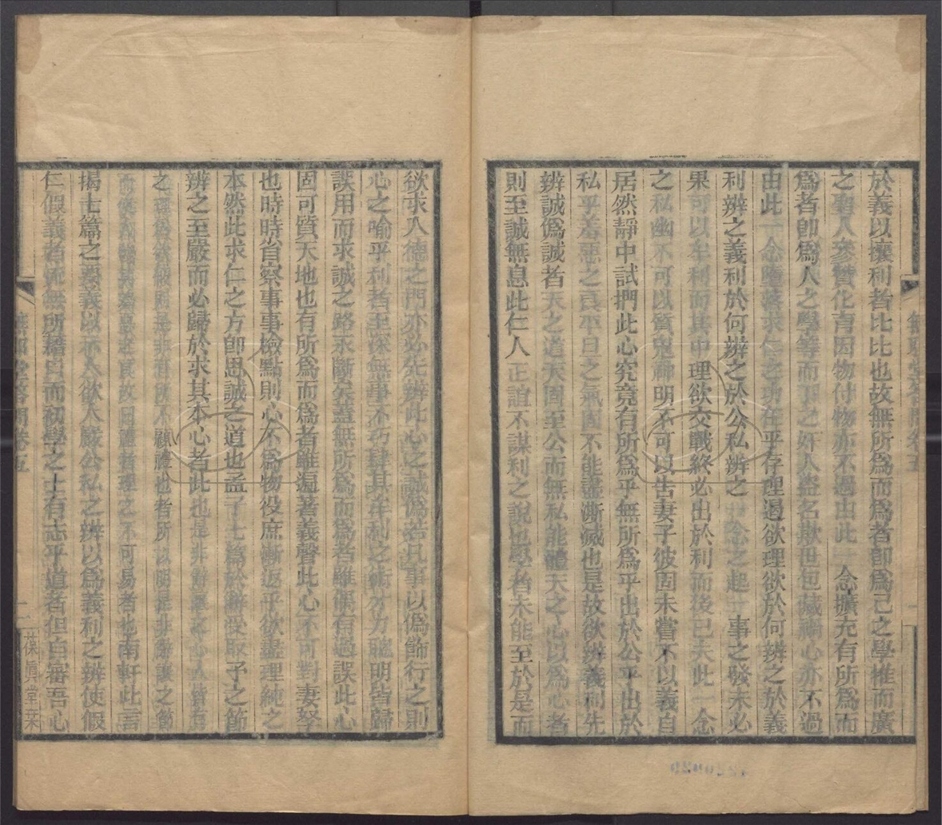 於義以壞利者比比也故無所爲而爲者卽爲己之學推而廣
之聖人參贊化育因物付物亦不過由此一念擴充有所爲而
爲者卽爲人之學等而下之奸人盜名欺世包藏禍心亦不過
由此一念墮落求仁之功在乎存理遏欲理欲於何辨之於義
利辨之義利於何辨之於公私辨之一念之起一事之發未必
果可以牟利而其中理欲交戰終必出於利而後已夫此一念
之私幽不可以質鬼神明不可以告妻子彼固未嘗不以義自
居然靜中試捫此心究竟有所爲乎無所爲乎出於公乎出於
私乎羞惡之良平旦之氣固不能盡澌滅也是故欲辨義利先
辨誠僞誠者天之道天固至公而無私能體天之心以爲心者
則至誠無息此仁人正誼不謀利之說也學者未能至於是而
欲求入德之門亦必先辨此心之誠僞若凡事以僞飾行之則
心之喻乎利者至深無事不巧肆其牟利之術才力聰明皆歸
誤用而求誠之路永斷矣蓋無所爲而爲者雖偶有過誤此心
固可質天地也有所爲而爲者雖遍著義聲此心不可對妻孥
也時時省察事事檢點則心不爲物役庶漸返乎欲盡理純之
本然此求仁之方卽思誠之道也孟子七篇於辭受取予之節
辨之至嚴而必歸於求其本心者此也是非辭讓之心人皆有
之 是非有所不顧禮也者所以明是非辭讓之節
而 者理之不可易者也南軒此言
揭七篇之要義以示人欲人嚴公私之辨以爲義利之辨使假
仁假義者 無所藉口而初學之士有志乎道者但自審吾心
葆眞堂栞